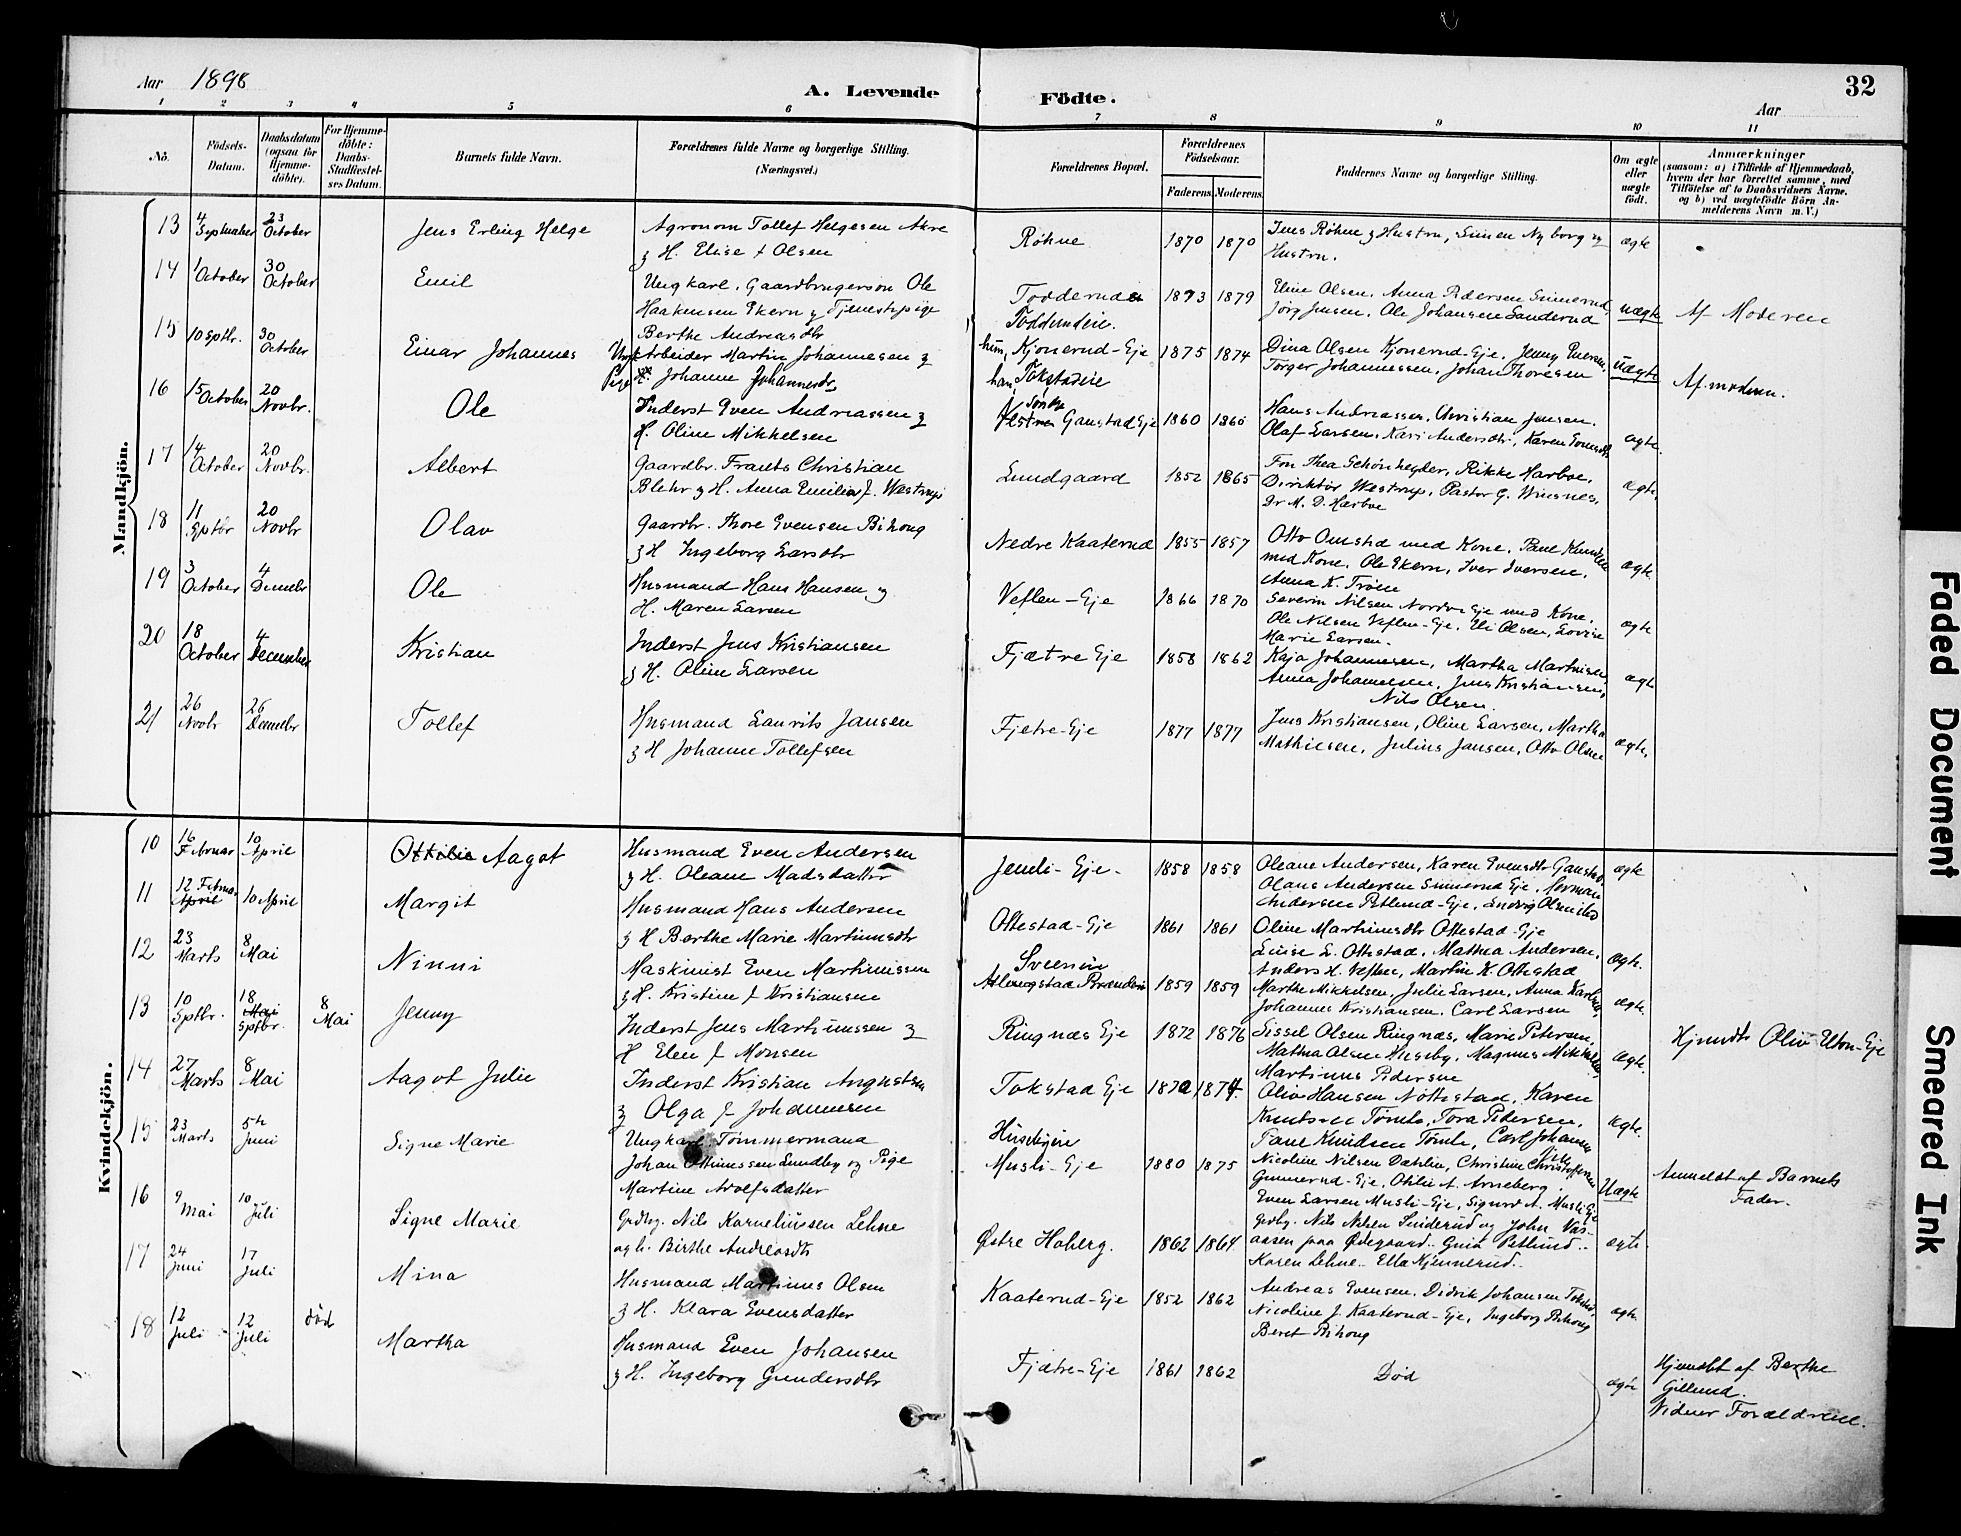 Aar 1898
A. Levende Födte.
32
Aar
1 2 3 4 5 6 7 8 9 10 11
No.
Födsels-Datum.
Daabsdatum (ogsaa for Hjemme-döbte).
For Hjemme-döbte: Daabs-Stadfæstel-ses Datum.
Barnets fulde Navn.
Forældrenes fulde Navne og borgerlige Stilling. (Næringsvei.)
Forældrenes Bopæl.
Forældrenes Födselsaar.
Faderens. Moderens.
Faddernes Navne og borgerlige Stilling.
Om ægte eller uægte födt.
Anmærkninger
(saasom: a) i Tilfælde af Hjemmedaab, hvem der har forrettet samme, med Tilföielse af to Daabsvidners Navne. og b) ved uægtefödte Börn An-melderens Navn m. V.)
Mandkjön.
13 4 September 23 October Jens Erling Helge Agronom Tollef Helgesen Akre
& H. Elise f Olsen Røhne 1870 1870 Jens Røhne & Hustru, Simen Nyborg og
Hustru. ægte
14 1 October 30 October Emil Ungkarl. Gaardbrugersøn Ole
Haakensen Ekern & Tjenestepige
Berthe Andreasdtr Todderud Todderudeie. 1873 1879 Eline Olsen, Anna Pedersen Simerud,
Jørg Jensen, Ole Johansen Sanderud uægte Af Moderen
15 10 Sptbr. 30 October Einar Johannes Ungk Arbeider Martin Johannesen &
Pige Johanne Johannesdtr hun, Kjonerud-Eje han Tokstadeie 1875 1874 Dina Olsen Kjonerud-Eje, Jenny Iversen,
Torger Johannessen, Johan Thoresen Uægte Af moderen.
16 15 October 20 Novbr. Ole Inderst Even Andreassen &
H. Oline Mikkelsen Søndre Vestre Gaustad Eje 1860 1860 Hans Andreassen, Christian Jensen.
Olaf Larsen, Kari Andersdtr, Karen Evensdt. ægte.
17 14 October 20 Novbr. Albert Gaardbr. Frants Christian
Blehr & H. Anna Emilia f. Westrup Lundgaard 1852 1865 Frn Thea Schønheyder, Rikke Harboe,
Direktør Westrup, Pastor G. Winsnes,
Dr M. D. Harboe ægte,
18 11 Sptbr 20 Novbr Olav Gaardbr. Thore Evensen Bihoug
& H Ingeborg Larsdtr Nedre Kaaterud 1855 1857 Otto Omstad med Kone. Paul Knudsen
med Kone, Ole Ekern, Iver Iversen,
Anna K. Trøen ægte
19 3 October 4 Decmbr Ole Husmand Hans Hansen og
H. Maren Larsen Veflen-Eje 1866 1870 Severin Nilsen Nordvi Eje med Kone.
Ole Nilsen Veflen-Eje, Eli Olsen, Lovise
Marie Larsen. ægte
20 18 October 4 December Kristian Inderst Jens Kristiansen
& H. Oline Larsen Fjætre Eje 1858 1862 Kaja Johannesen, Martha Martinsen,
Anna Johannesen, Jens Kristiansen,
Nils Olsen. ægt
21 26 Novbr 26 Decmbr Tollef Husmand Laurits Jansen
& H Johanne Tollefsen Fjetre-Eje 1877 1877 Jens Kristiansen, Oline Larsen, Martha
Mathiesen, Julius Jansen, Otto Olsen ægte.
Kvindekjön.
10 16 Februar 10 April Ottilie Aagot Husmand Even Andersen
& H. Oleane Madsdatter Jemli-Eje- 1858 1858 Oleane Andersen, Karen Evensdtr Gaustad.
Olaus Andersen Simerud Eje, Herman
Andersen Petlund-Eje, Ludvig Olsen ibid ægte
11 12 Februar April 10 April Margit Husmand Hans Andersen
& H Berthe Marie Martinusdtr Ottestad-Eje 1861 1861 Oline Martinusdtr Ottestad-Eje
Luise L. Ottestad, Mathea Andersen,
Anders H. Veflen, Martin K. Ottestad ægte.
12 23 Marts 8 Mai Ninni Maskinist Even Martinissen
& H. Kristine f Kristiansen Sveenin Atlungstad Brænderi 1859 1859 Marthe Mikkelsen, Julie Larsen, Anna Karlsen,
Johannes Kristiansen, Carl Larsen ægte.
13 10 Sptbr. 18 Mai Sptbr. 8 Mai Jenny Inderst Jens Martinussen &
H Elen f Monsen Ringnæs Eje 1872 1876 Sissel Olsen Ringnæs, Marie Petersen,
Mathea Olsen Huseby, Magnus Mikkelsen,
Martinus Pedersen ægte. Hjemdt Olív Elton-Eje
14 27 Marts 8 Mai Aagot Julie Inderst Kristian Angustsen
& Olga f Johannesen Tokstad Eje 1872 1874. Oliv Hansen Nøttestad, Karen
Knutsen Tømte, Tora Petersen,
Paul Knudsen Tømte, Carl Johansen ægte.
15 23 Marts 5te Juni Signe Marie Ungkarl Tømmermand
Johan Ottinussen Lundby og Pige
Martine Adolfsdatter Husebyeie Musli-Eje 1880 1875 Nicoline Nilsen Dæhlin, Christine Christoffersen
Gunnerud-Eje, Otilie A. Arneberg.
Even Larsen Musli-Eje, Sigurd A. Musli Eje Uægte Anmeldt af Barnets
Fader.
16 9 Mai 10 Juli Signe Marie Grdbg. Nils Korneliussen Lehne
og h. Birthe Andreasdtr Østre Hoberg. 1862 1864. Grdbg. Nils Nilsen Sniderud og John Vas-
aasen paa Ødegaard.. Guia Petlund..
Karen Lehne.. Ella Kjennerud.. ægte
17 24 Juni 17 Juli Mina Husmand Martinus Olsen
& H. Klara Evensdatter Kaaterud-Eje 1852 1862 Andreas Evensen, Didrik Johansen Tokstad,
Nicoline J. Kaaterud-Eje, Ingeborg Bihoug
Beret Bihoug ægte
18 12 Juli 12 Juli død Martha Husmand Even Johansen
& H. Ingeborg Gundersdtr Fjætre-Eje 1861 1862 Død ægte Hjemdbt af Berthe
Gillund.
Vidner Forældrene.
Faded Document
Smeared Ink